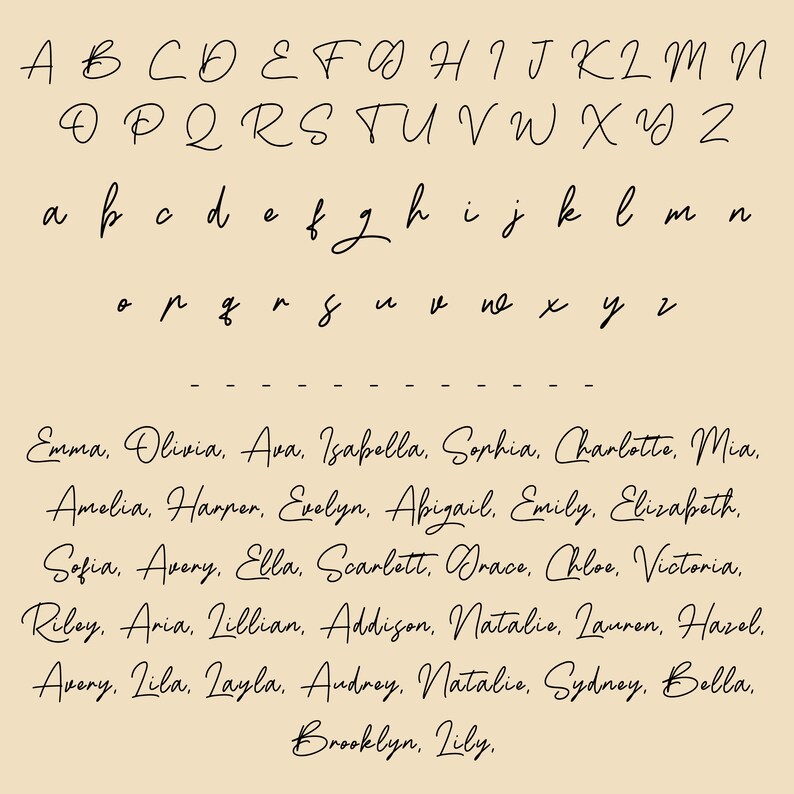 A B C D E F G H I J K L M N
O P Q R S T U V W X Y Z
a b c d e f g h i j k l m n
o p q r s u v w x y z
- - - - - - - - - - - -
Emma, Olivia, Ava, Isabella, Sophia, Charlotte, Mia,
Amelia, Harper, Evelyn, Abigail, Emily, Elizabeth,
Sofia, Avery, Ella, Scarlett, Grace, Chloe, Victoria,
Riley, Aria, Lillian, Addison, Natalie, Lauren, Hazel,
Avery, Lila, Layla, Audrey, Natalie, Sydney, Bella,
Brooklyn, Lily,